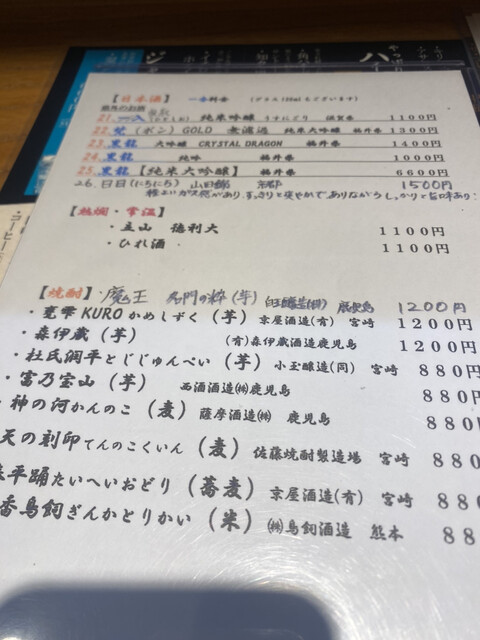 【日本酒】 一合料金 (グラス120mlもございます)
県外のお酒
21. 純米吟醸 うすにごり 滋賀県 1100円
22. 梵 (ボン) GOLD 無濾過 純米大吟醸 福井県 1300円
23. 黒龍 大吟醸 CRYSTAL DRAGON 福井県 1400円
24. 黒龍 純吟 福井県 1000円
25. 黒龍【純米大吟醸】 福井県 6600円
26. 日日 (にちにち) 山田錦 京都 1500円
軽いガス感があり、すっきりと爽やかでありながらしっかりと旨味あり
【熱燗・常温】
・立山 徳利大 1100円
・ひれ酒 1100円
【焼酎】・魔王 名門の粋 (芋) 白玉醸造(株) 鹿児島 1200円
・甕雫 KURO かめしずく (芋) 京屋酒造(有) 宮崎 1200円
・森伊蔵 (芋) (有)森伊蔵酒造鹿児島 1200円
・杜氏潤平とじじゅんぺい (芋) 小玉醸造(同) 宮崎 880円
・富乃宝山 (芋) 西酒酒造㈱鹿児島 880円
・神の河かんのこ (麦) 薩摩酒造㈱ 鹿児島 880円
天の刻印てんのこくいん (麦) 佐藤焼酎製造場 宮崎 880
平踊たいへいおどり (蕎麦) 京屋酒造(有) 宮崎 880
香鳥飼ぎんかとりかい (米) ㈱鳥飼酒造 熊本 88